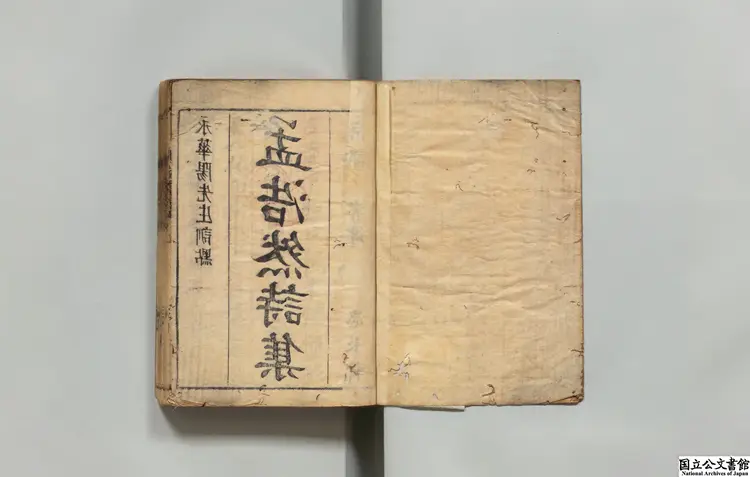 華陽先生訓點
孟浩然詩集
国立公文書館
National Archives of Japan